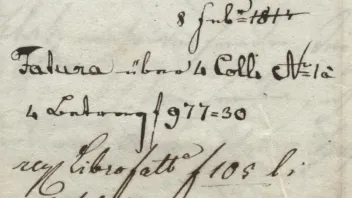 8 Febr= 1814
Fatura über 4 Colli Nr= 1 à
4 Betrag f 977=30
reg Libro fatte f 105 li